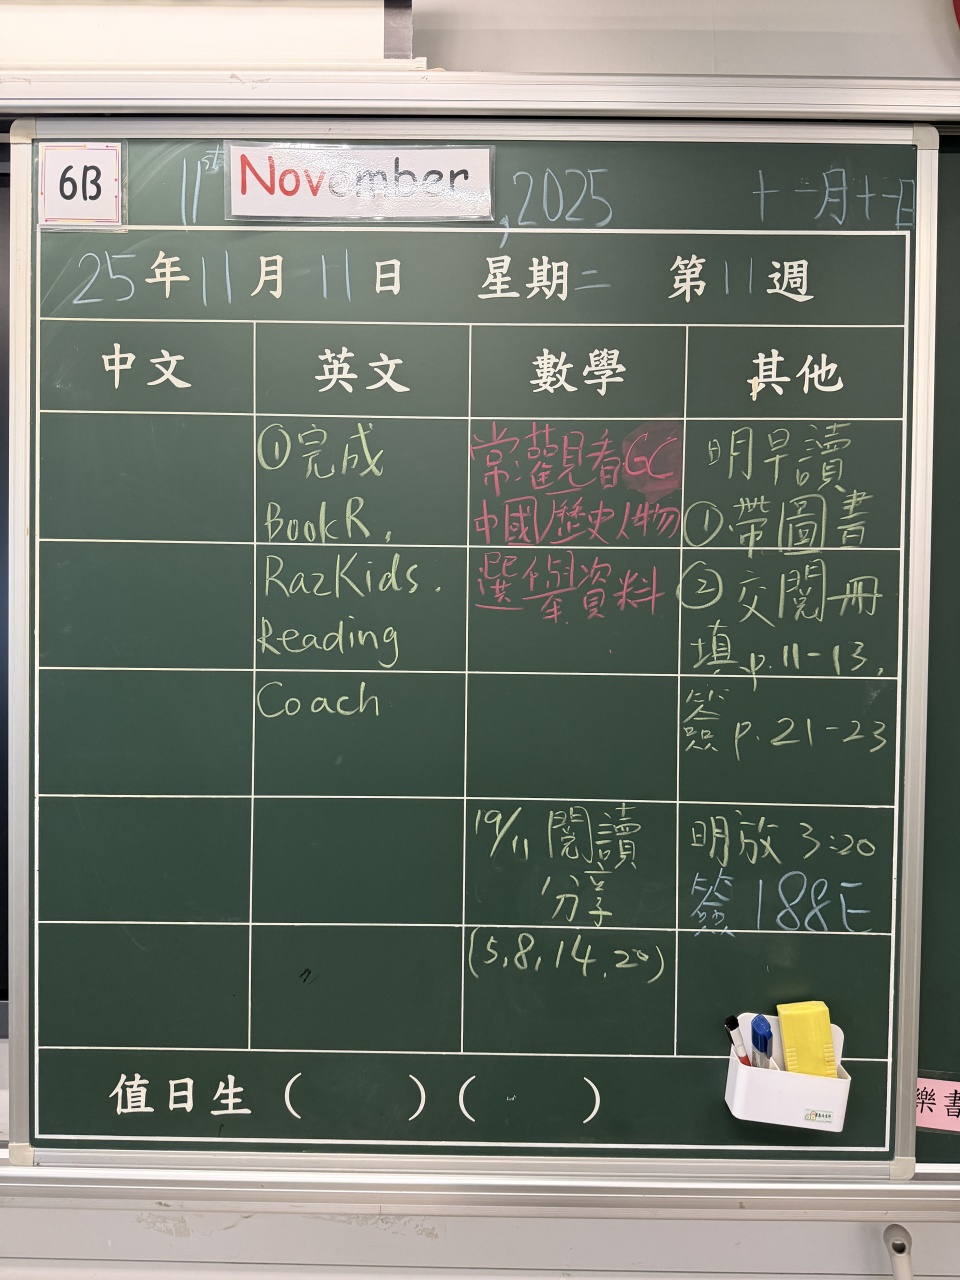 6B
11st November, 2025
十一月十一日
25年11月11日 星期二 第11週
中文 英文 數學 其他
①完成
BookR,
RazKids.
Reading
Coach
常識觀看GC
中國歷史人物
選舉資料
19/11 閱讀
分享
(5,8,14,20)
明早讀
①帶圖書
②交閱冊
填p.11-13,
簽p.21-23
明放3:20
簽188E
值日生( )( )
樂書